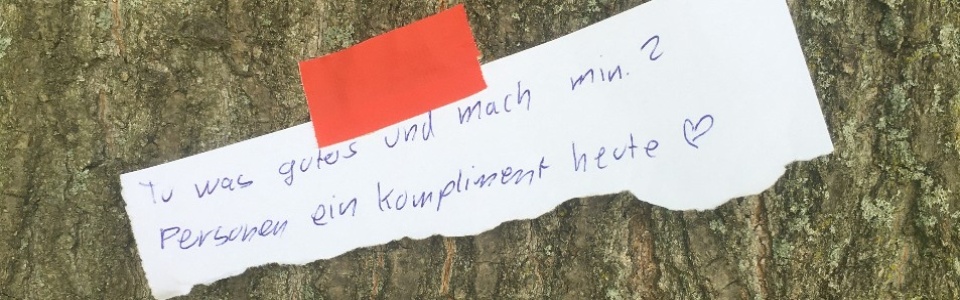 Tu was gutes und mach min. 2
Personen ein Kompliment heute ♡